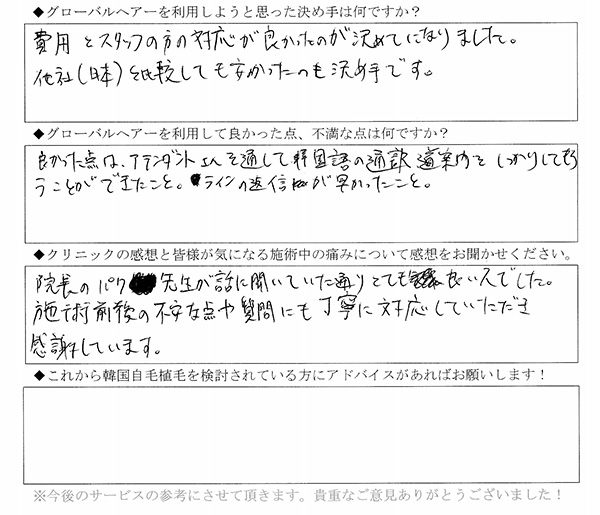 ◆グローバルヘアーを利用しようと思った決め手は何ですか？
費用とスタッフの方の対応が良かったのが決めてになりました。
他社(日本)と比較しても安かったのも決め手です。
◆グローバルヘアーを利用して良かった点、不満な点は何ですか？
良かった点は、アテンダントさんを通して韓国語の通訳、道案内をしっかりしてもら
うことができたこと。ラインの返信が早かったこと。
◆クリニックの感想と皆様が気になる施術中の痛みについて感想をお聞かせください。
院長のパク先生が話に聞いていた通りとても良い人でした。
施術前後の不安な点や質問にも丁寧に対応していただき
感謝しています。
◆これから韓国自毛植毛を検討されている方にアドバイスがあればお願いします！
※今後のサービスの参考にさせて頂きます。貴重なご意見ありがとうございました！